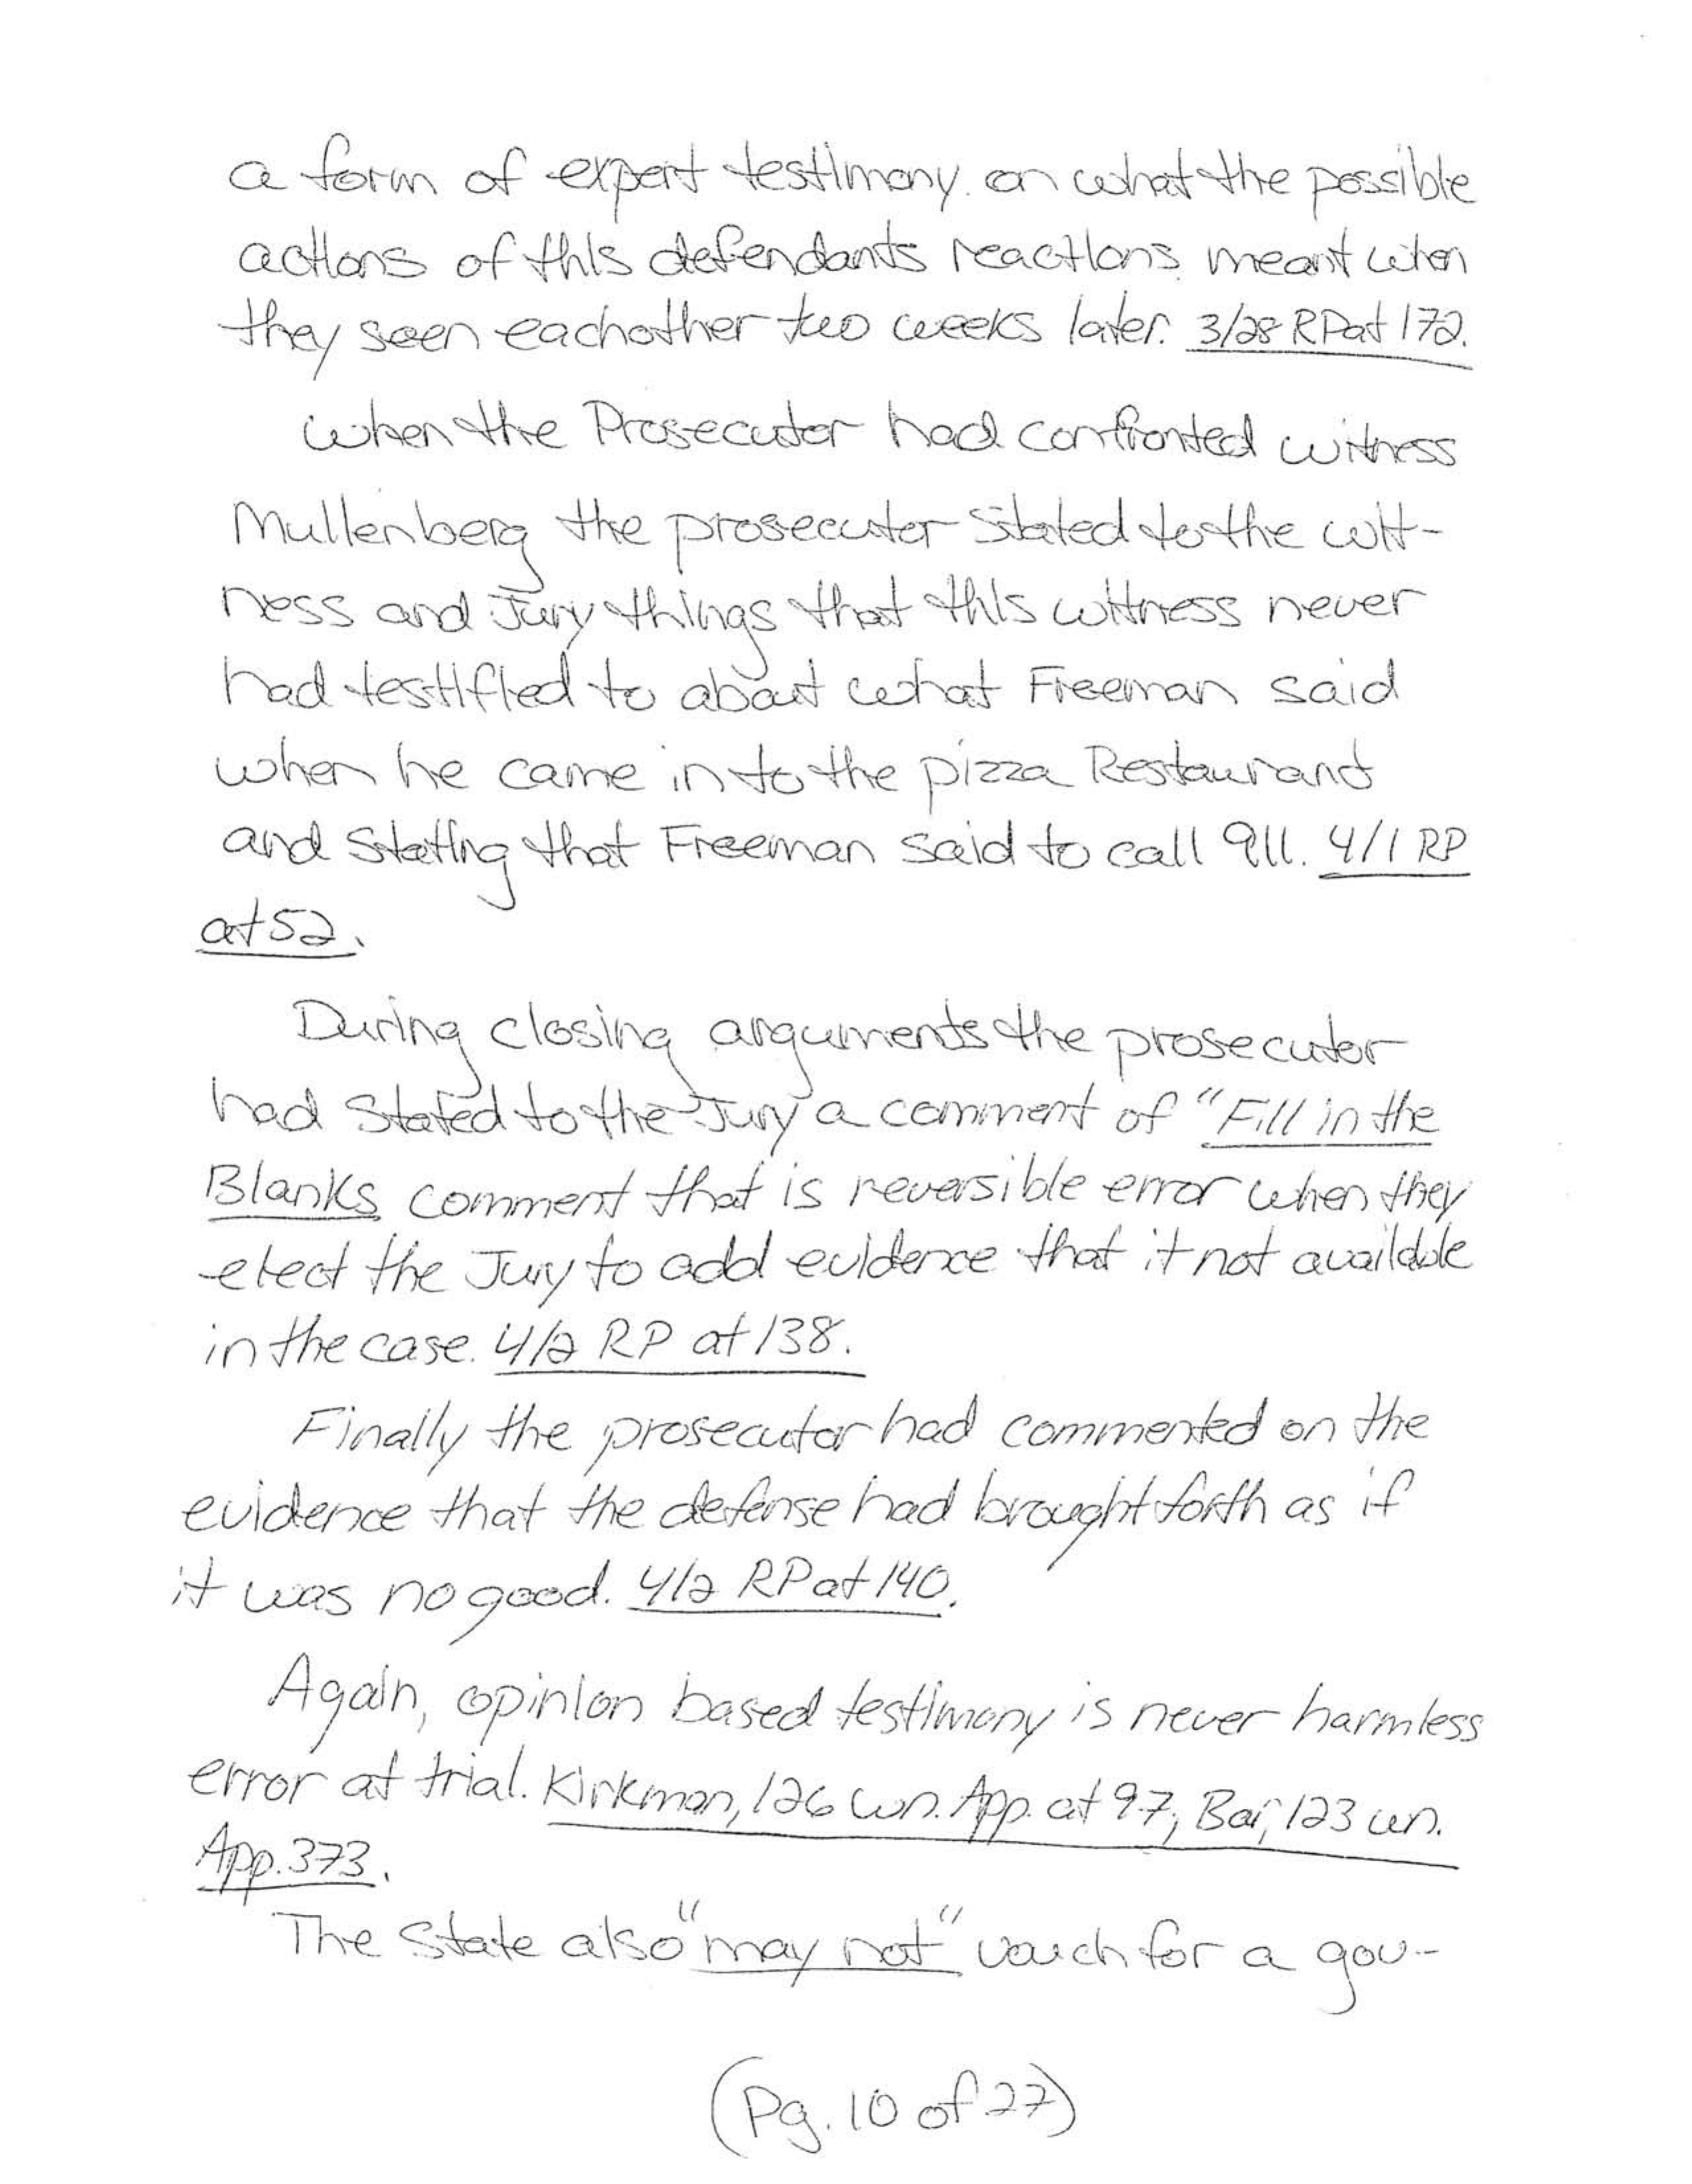 a form of expert testimony. on what the possible
actions of this defendants reactions meant when
they seen eachother two weeks later. 3/28 RP at 172.
when the Prosecutor had confronted witness
Mullenberg the prosecutor stated to the wit-
ness and Jury things that this witness never
had testified to about what Freeman said
when he came in to the pizza Restaurant
and stating that Freeman said to call 911. 4/1 RP
at 52.
During closing arguments the prosecutor
had stated to the Jury a comment of "Fill in the
Blanks comment that is reversible error when they
elect the Jury to add evidence that it not available
in the case. 4/2 RP at 138.
Finally the prosecutor had commented on the
evidence that the defense had brought forth as if
it was no good. 4/2 RP at 140.
Again, opinion based testimony is never harmless
error at trial. Kirkman, 126 Wn. App. at 97; Barr, 123 wn.
App. 373.
The State also "may not" vouch for a gov-
(Pg. 10 of 27)